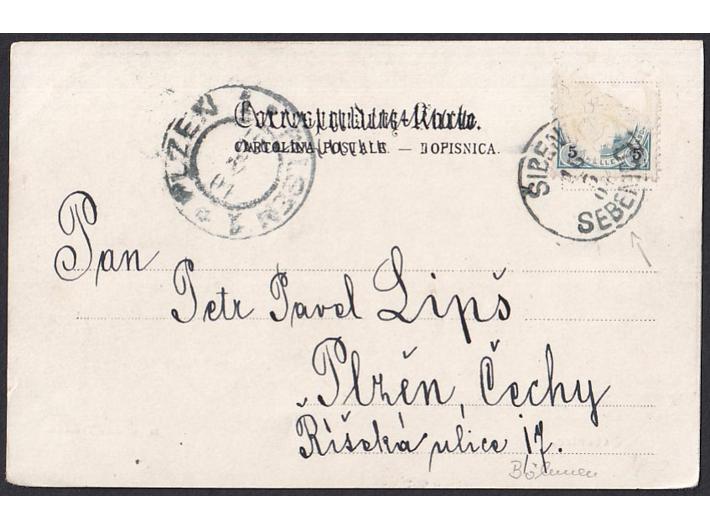 Correspondenz-Karte.
CARTOLINA POSTALE. — DOPISNICA.
PLZEŇ PILSEN 1
5 5
SEBENICO
Pan
Petr Pavel Lipš
Plzěn, Čechy
Říšská ulice 17.
Böhmen